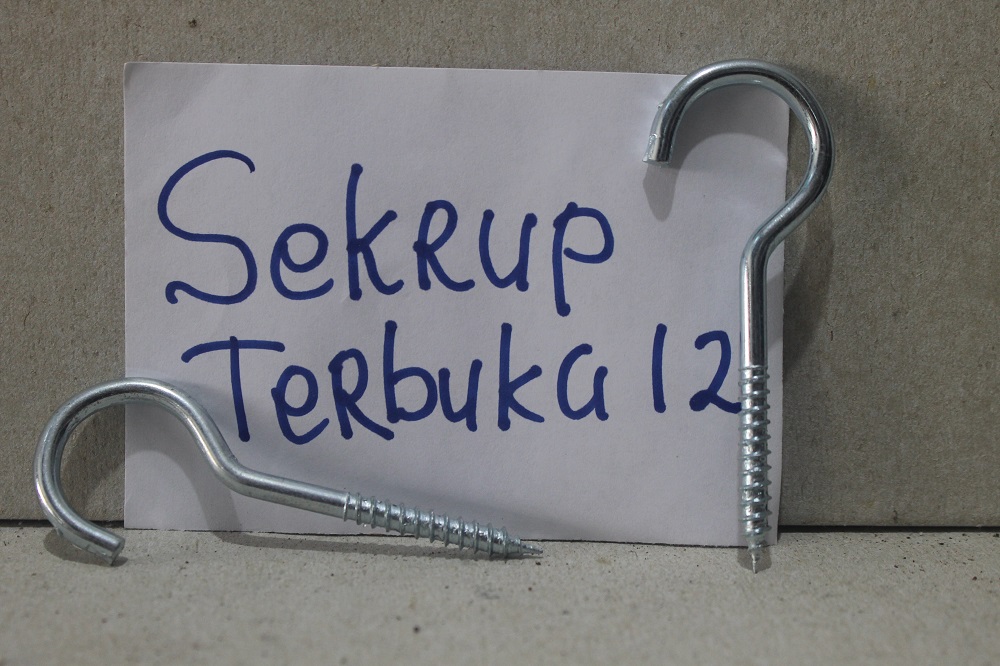 Sekrup
Terbuka 12